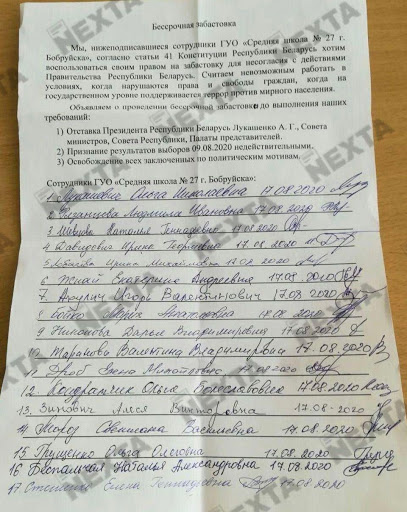 Бессрочная забастовка
Мы, нижеподписавшиеся сотрудники ГУО «Средняя школа № 27 г.
Бобруйска», согласно статьи 41 Конституции Республики Беларусь хотим
воспользоваться своим правом на забастовку для несогласия с действиями
Правительства Республики Беларусь. Считаем невозможным работать в
условиях, когда нарушаются права и свободы граждан, когда на
государственном уровне поддерживается террор против мирного населения.
Объявляем о проведении бессрочной забастовке до выполнения наших
требований:
1) Отставка Президента Республики Беларусь Лукашенко А. Г., Совета
министров, Совета Республики, Палаты представителей.
2) Признание результатов выборов 09.08.2020 недействительными.
3) Освобождение всех заключенных по политическим мотивам.
Сотрудники ГУО «Средняя школа № 27 г. Бобруйска»:
1. Ольга Николаевна 17.08.2020
2. Людмила Ивановна 17.08.2020
3. Наталья Геннадьевна 17.08.2020
4. Давидович Ирина 17.08.2020
5. Ирина Михайловна 17.08.2020
6. Екатерина Андреевна 17.08.2020
7. Игорь Валентинович 17.08.2020
8. 17.08.2020
9. Никонова Дарья Владимировна 17.08.2020
10. Таранова Валентина Владимировна 17.08.2020
11. Дроб Елена 17.08.2020
12. Ольга Болеславовна 17.08.2020
13. Зинович Алеся Викторовна 17.08-2020
14. Мороз Светлана Васильевна 17.08.2020
15. Грищенко Ольга Олеговна 17.08.2020
16. Беспальчая Наталья Александровна 17.08.2020
17. Елена Геннадьевна 17.08.2020
NEXTA